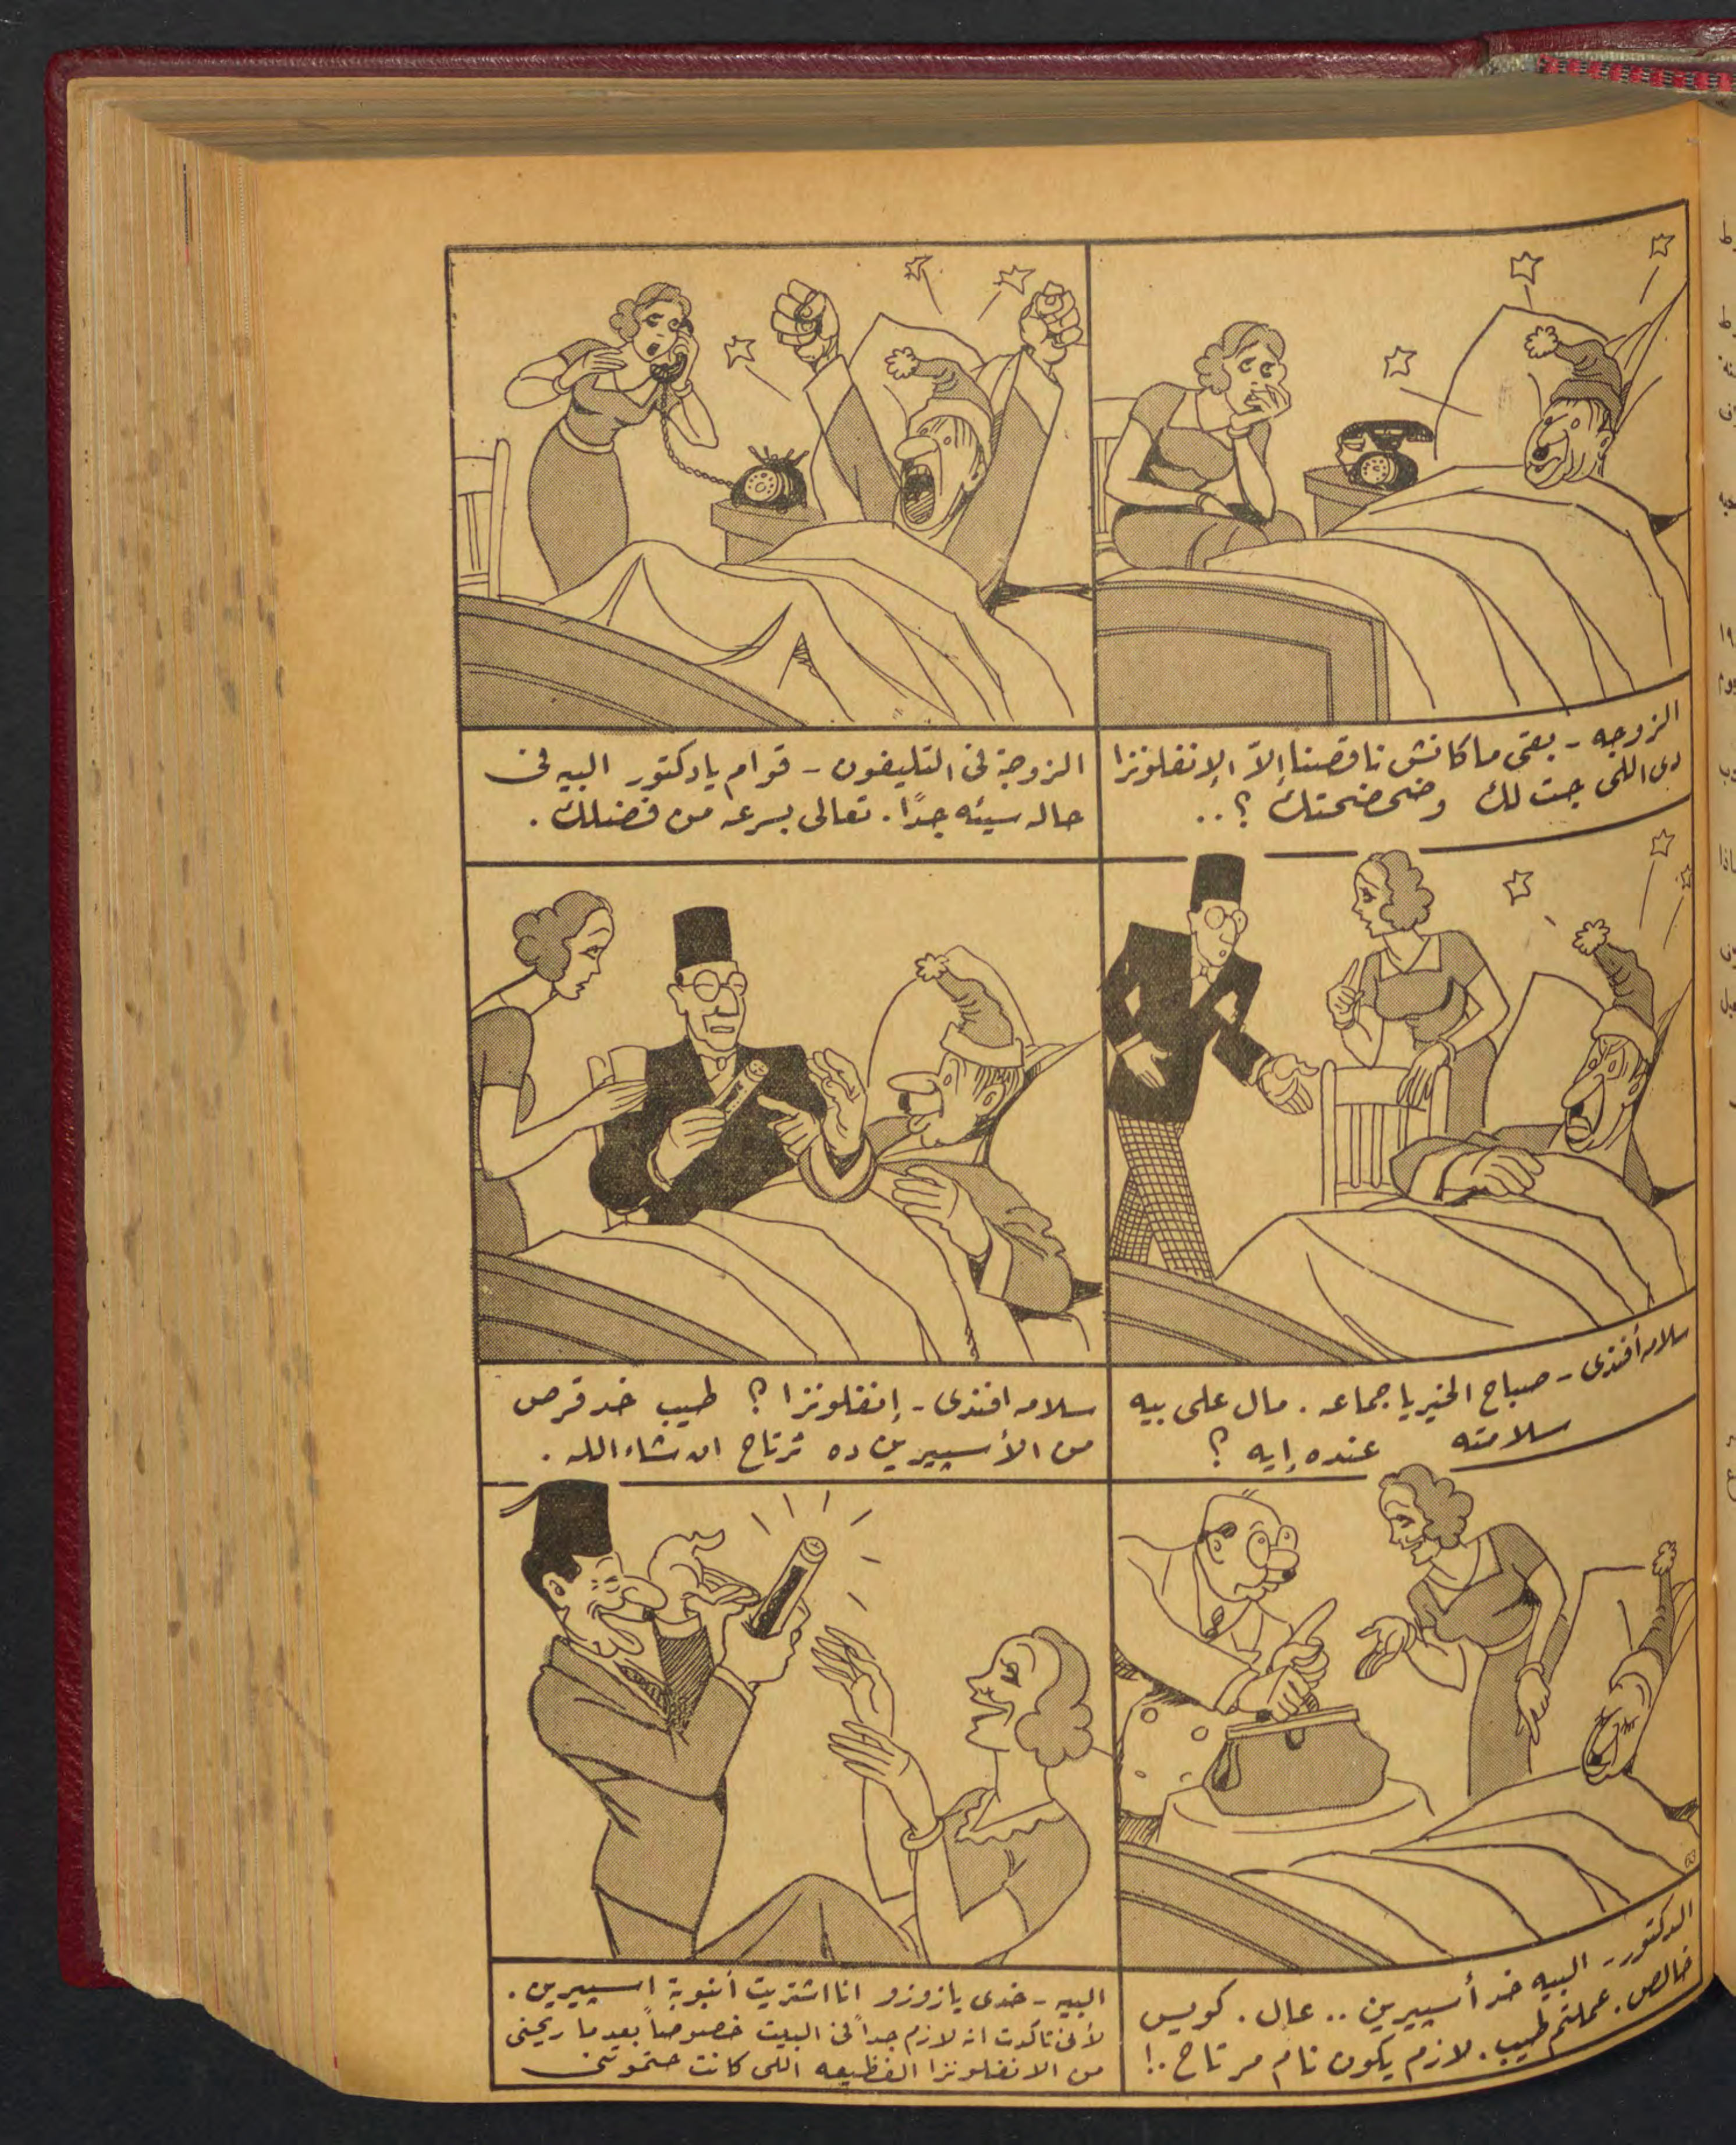 الزوجه - بقى ما كانش ناقصنا إلاّ الإنفلونزا
دى اللى جت لك وضحضحتك ؟..
الزوجة فى التليفون - قوام يا دكتور البيه فى
حاله سيئه جدًا. تعالى بسرعه من فضلك.
سلامه أفندى - صباح الخير يا جماعه. مال على بيه
سلامته عنده إيه ؟
سلامه افندى - إنفلونزا ؟ طيب خد قرص
من الأسبيرين ده ترتاح ان شاء الله.
الدكتور - البيه خد أسبيرين .. عال. كويس
خالص. عملتم طيب. لازم يكون نام مرتاح .!
البيه - خدى يا زوزو انا اشتريت أنبوبة اسبيرين.
لأنى تأكدت انه لازم جداً فى البيت خصوصاً بعد ما ريحنى
من الانفلونزا الفظيعه اللى كانت حتموتنى